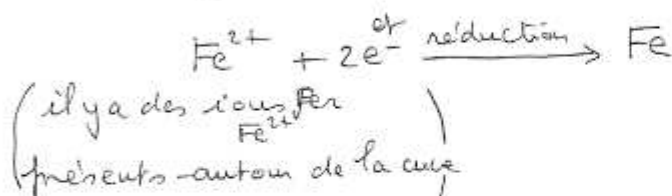 Fe²⁺ + 2e⁻ et réduction → Fe
(il y a des ions Fer
Fe²⁺
présents autour de la cuve)